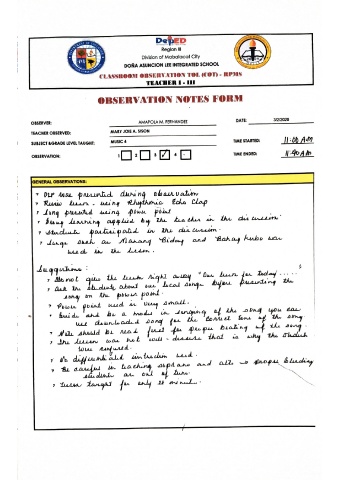 DepED
Region III
Division of Mabalacat City
DOÑA ASUNCION LEE INTEGRATED SCHOOL
CLASSROOM OBSERVATION TOL (COT) - RPMS
TEACHER I - III
OBSERVATION NOTES FORM
OBSERVER: AMAPOLA M. FERNANDEZ DATE: 3/2/2020
TEACHER OBSERVED: MARY JOIE A. SISON
SUBJECT & GRADE LEVEL TAUGHT: MUSIC 4 TIME STARTED: 11:00 AM
OBSERVATION: 1 2 3 4 TIME ENDED: 11:40 AM
GENERAL OBSERVATIONS:
DLP was presented during observation
Review lesson - using Rhythmic Echo Clap
Song presented using power point
learning applied by the teacher in the discussion.
Students participated in the discussion.
Songs such as Manang Biday and Bahay Kubo was
used in the lesson.
Suggestions:
Do not give the lesson right away "Our lesson for today....
Ask the students about our local songs before presenting the
song on the power point.
Power point used is very small.
Guide and be a model in singing of the song you can
use downloaded song for the correct tone of the song
Note should be read first for proper beating of the song.
The lesson was not well - that is why the students
were confused.
No differentiated instruction used.
Be careful in teaching soprano and alto → proper blending
students are out of tune.
Lesson taught for only 20 minutes.